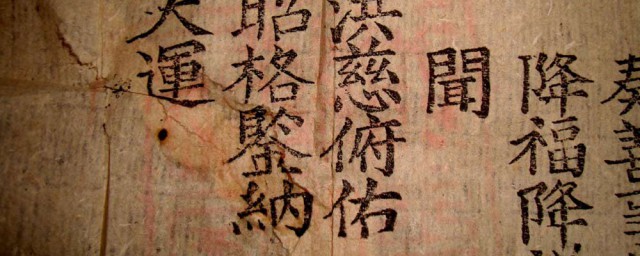 奏善
降福降
聞
洪慈俯佑
昭格鑒納
天運